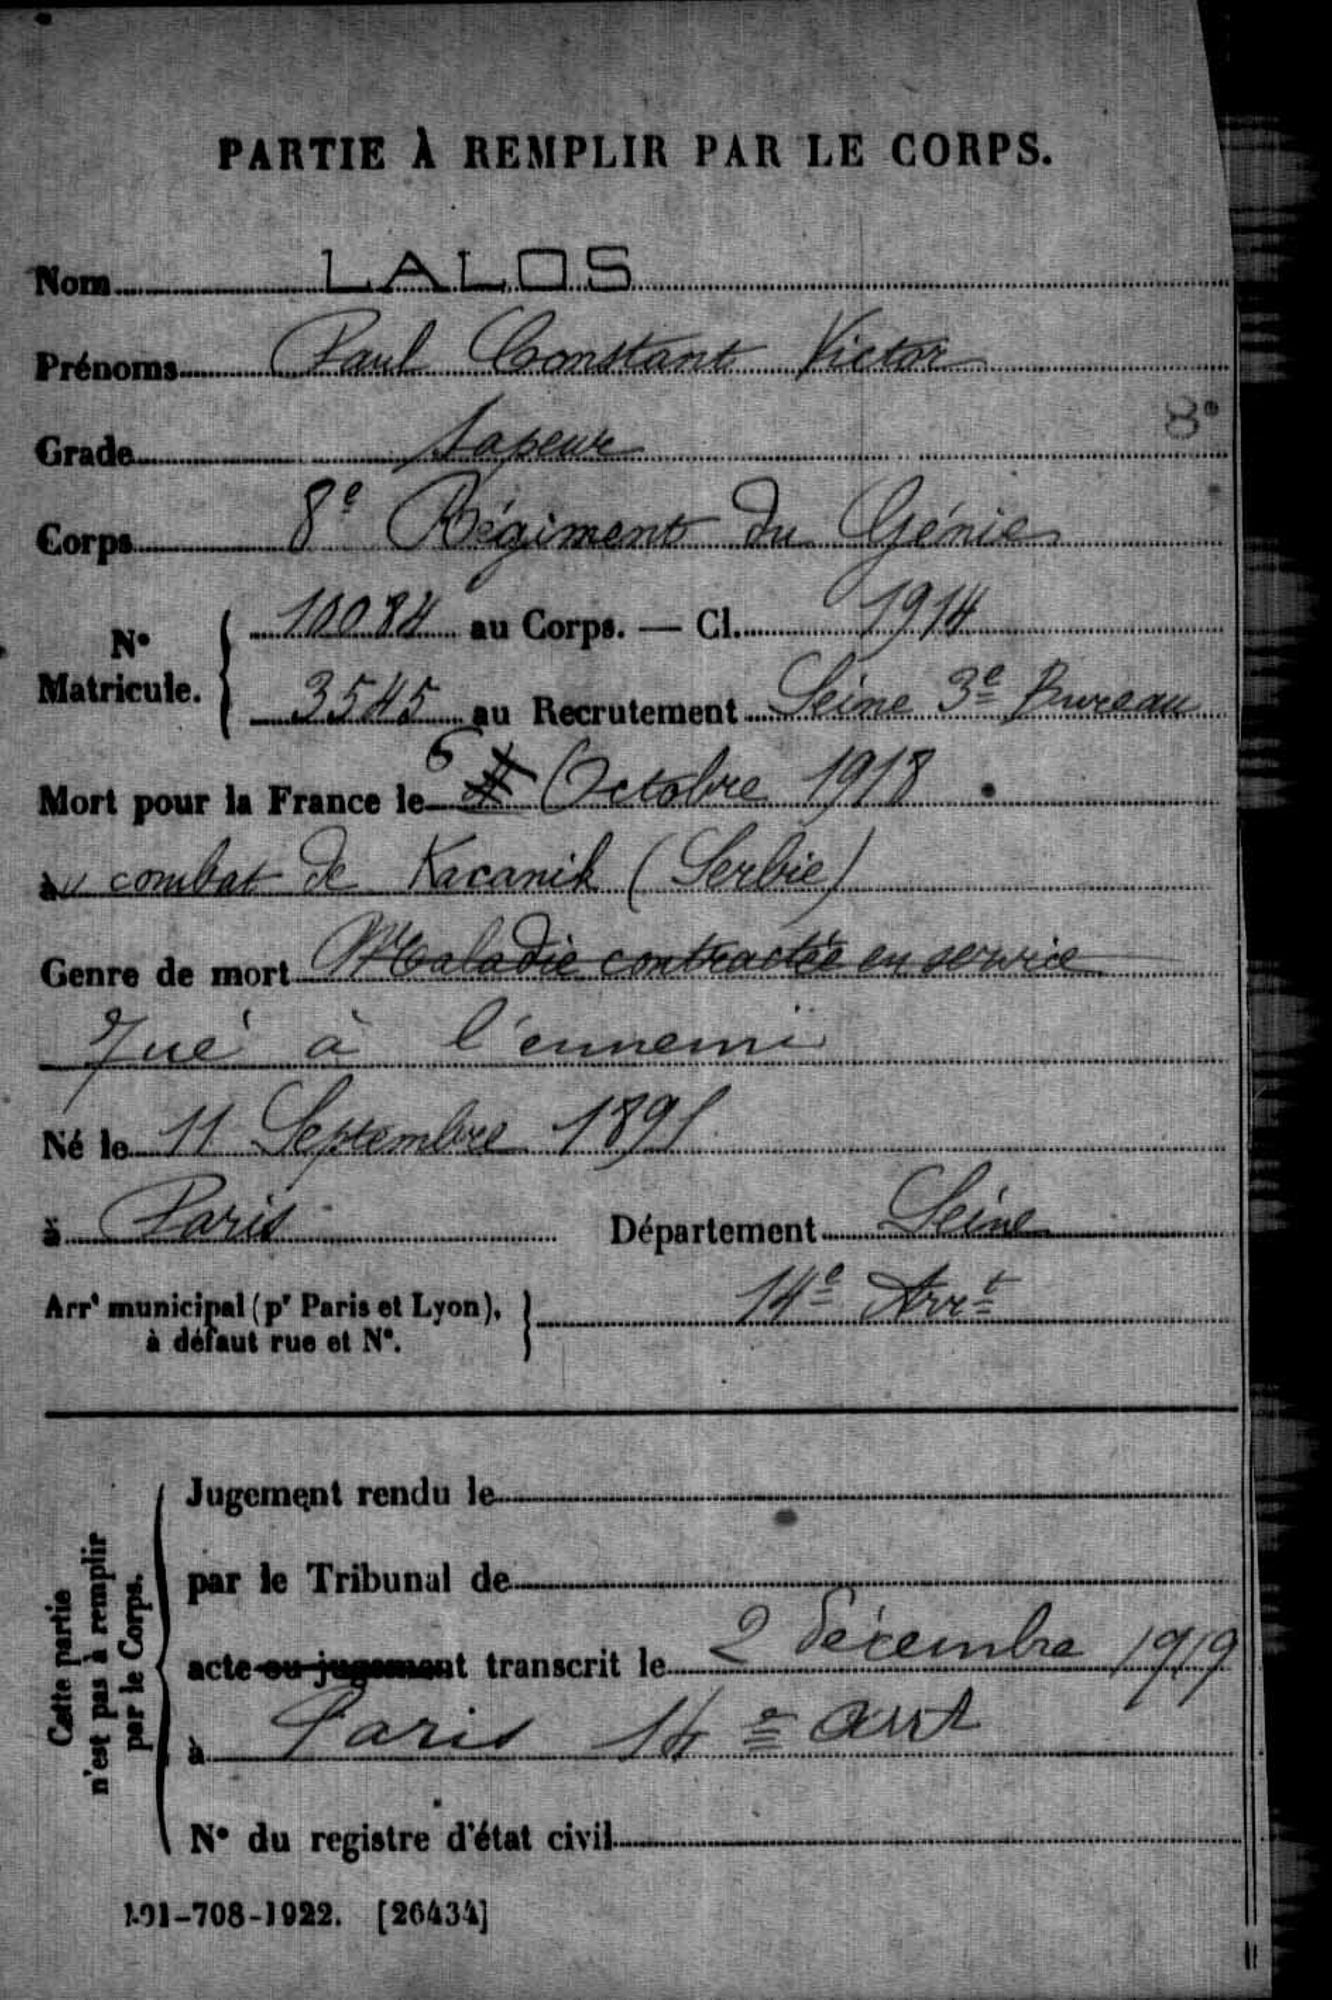 PARTIE À REMPLIR PAR LE CORPS.
Nom LALOS
Prénoms Paul Constant Victor
8°
Grade Sapeur
Corps 8e Régiment du Génie
N° Matricule. 10084 au Corps. — Cl. 1914
3545 au Recrutement Seine 3e Bureau
Mort pour la France le 6 Octobre 1918
au combat de Kacanik (Serbie)
Genre de mort Maladie contractée en service
Tué à l'ennemi
Né le 11 Septembre 1891
à Paris Département Seine
Arrt municipal (pr Paris et Lyon), à défaut rue et N°. 14e Arrt
Cette partie n'est pas à remplir par le Corps.
Jugement rendu le
par le Tribunal de
acte ou jugement transcrit le 2 décembre 1919
à Paris 14e arrt
N° du registre d'état civil
101-708-1922. [26434]